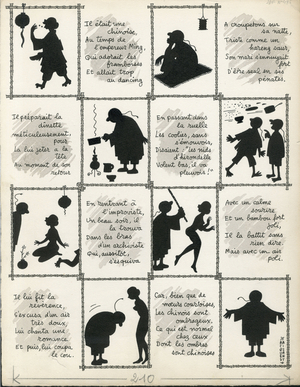 Il était une
chinoise,
Au temps de
l'empereur Ming,
Qui adorait les
framboises
Et allait trop
au dancing
A croupetons sur
sa natte,
Triste comme un
hareng saur,
Son mari s'ennuyait
fort
D'être seul en ses
pénates.
Il préparait la
dînette
méticuleusement,
pour
La lui jeter à la
tête
Au moment de son
retour
En passant dans
la ruelle
Les coolies, sans
s'émouvoir,
Disaient: "les nids
d'hirondelle
Volent bas, il va
pleuvoir!"
En rentrant à
l'improviste,
Un beau soir, il
la trouva
Dans les bras
d'un archiviste
Qui, aussitôt,
s'esquiva
Avec un calme
sourire
Et un bambou fort
joli,
Il la battit sans
rien dire
Mais avec un air
poli.
Il lui fit la
révérence,
S'excusa d'un air
très doux,
Lui chanta une
romance
Et puis, lui coupa
le cou.
Car, bien que de
mœurs courtoises,
Les chinois sont
ombrageux,
Ce qui est normal
chez ceux
Dont les ombres
sont chinoises
K
210